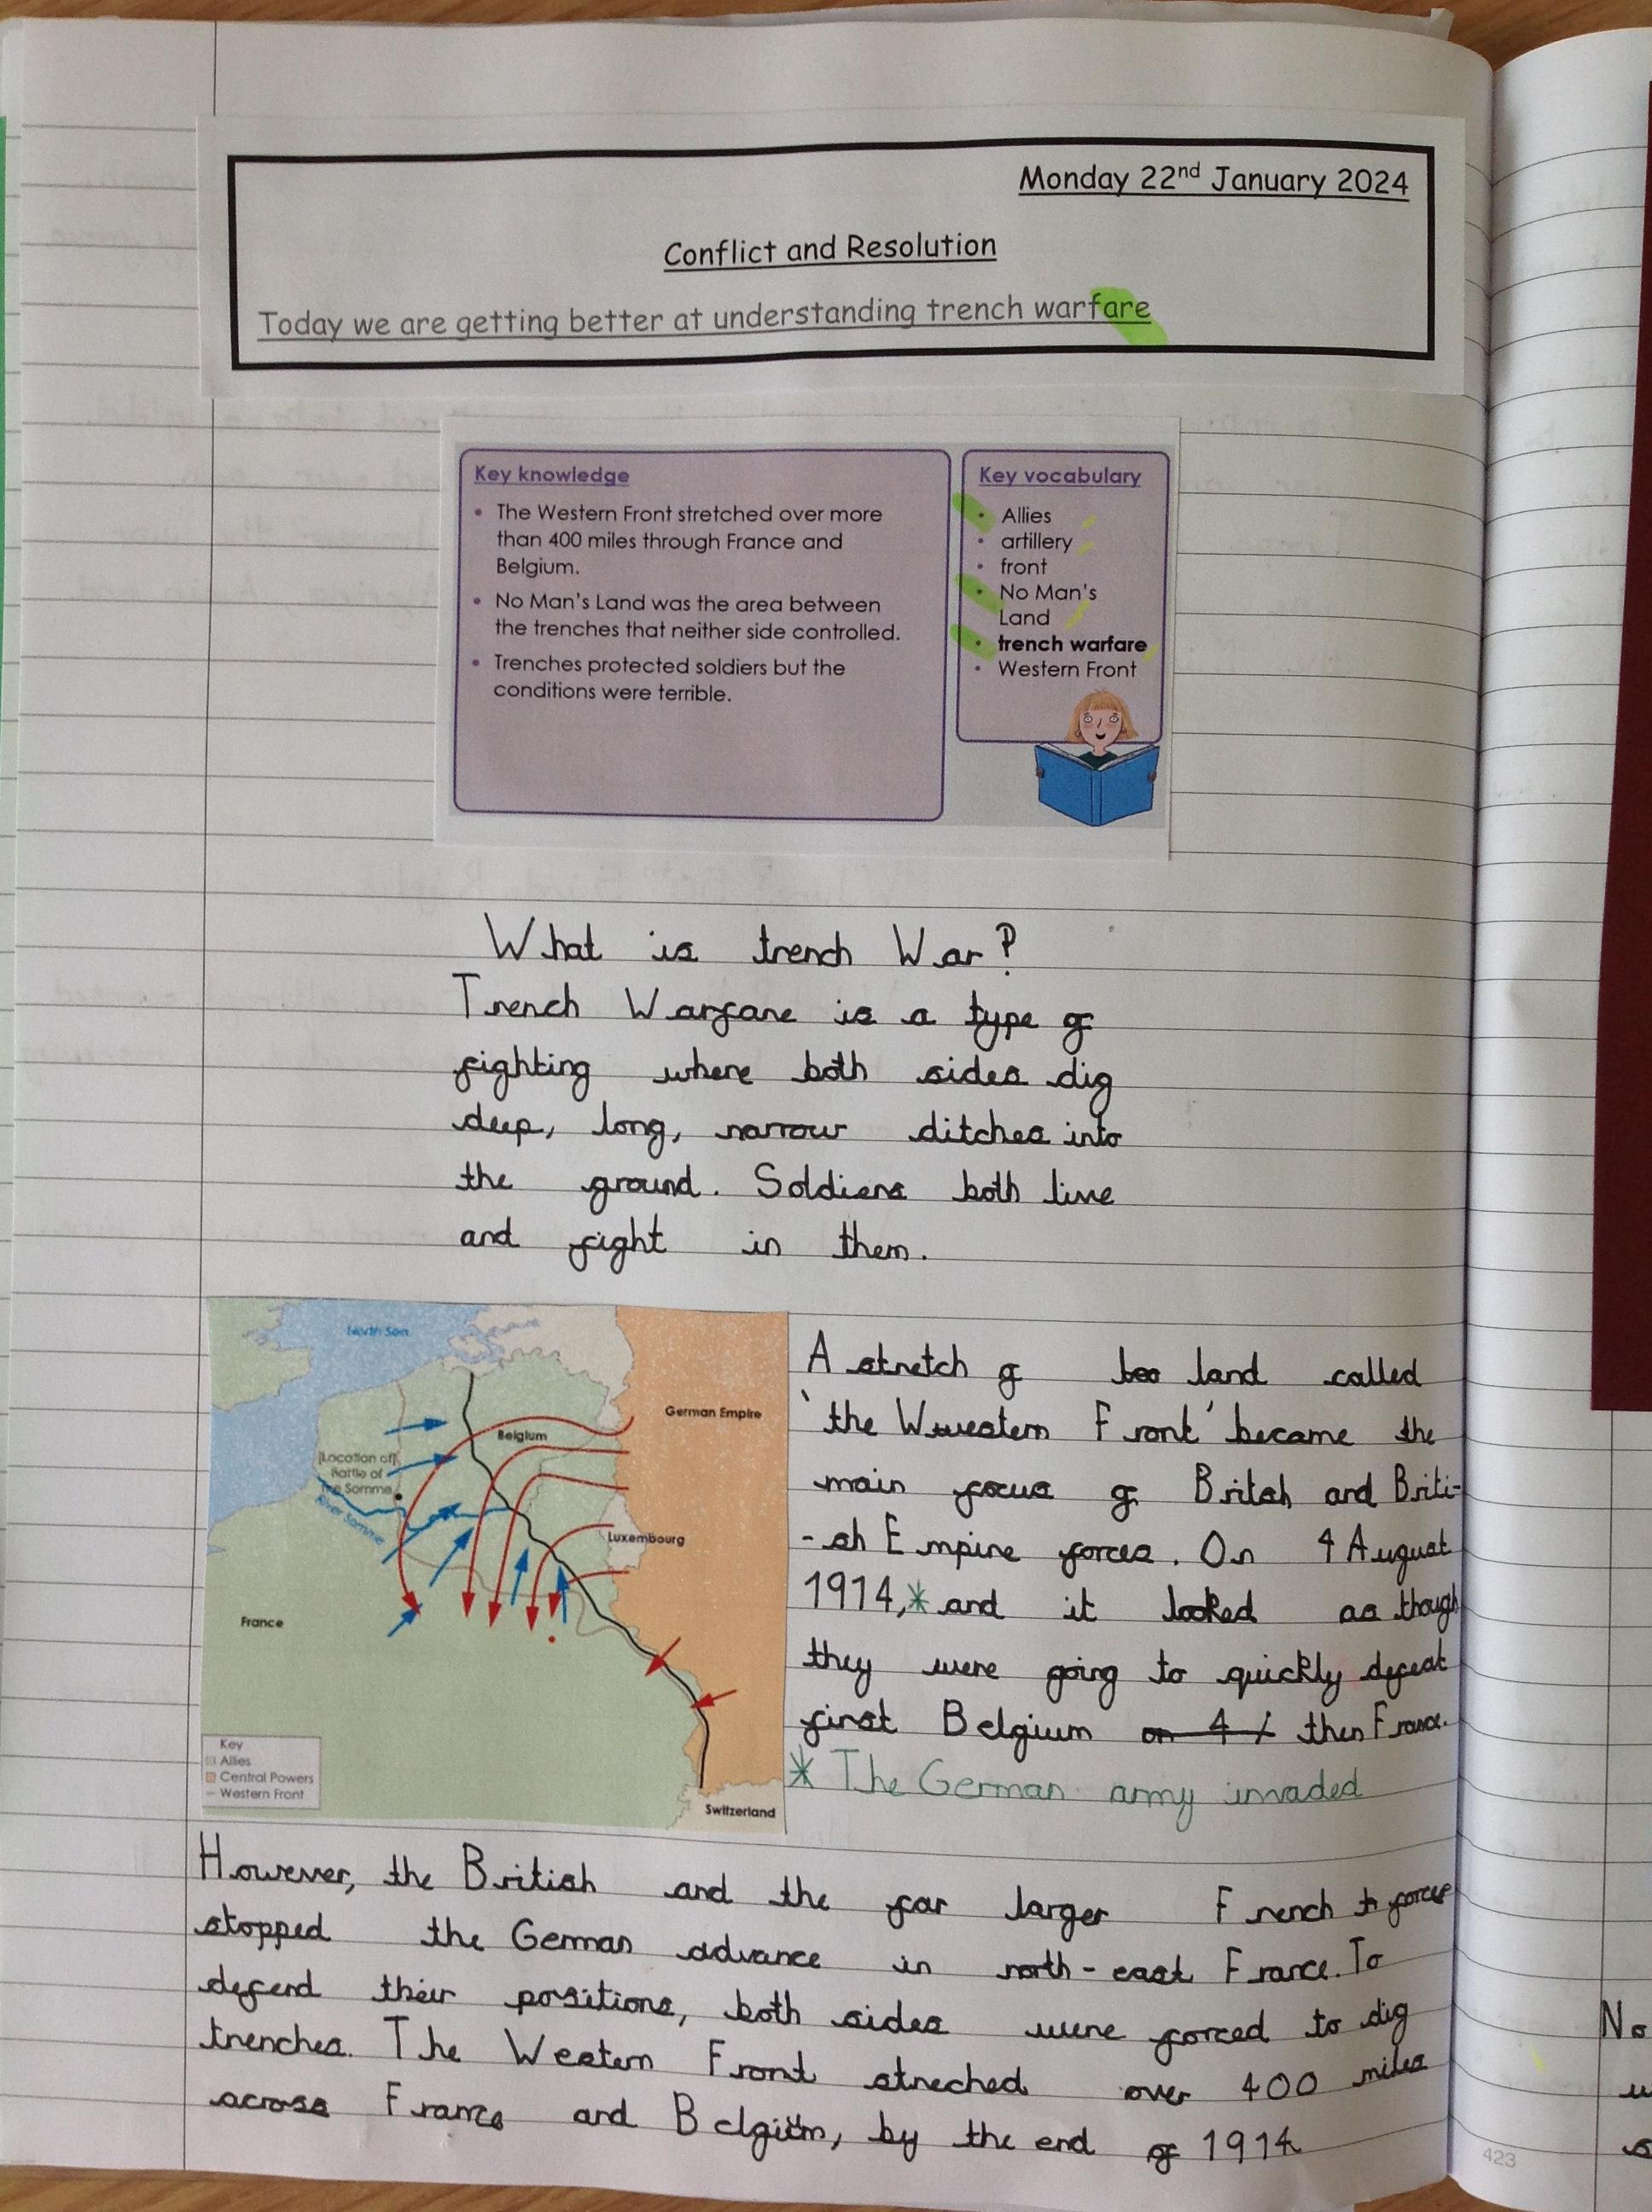 Monday 22nd January 2024
Conflict and Resolution
Today we are getting better at understanding trench warfare
Key knowledge
• The Western Front stretched over more
than 400 miles through France and
Belgium.
• No Man's Land was the area between
the trenches that neither side controlled.
• Trenches protected soldiers but the
conditions were terrible.
Key vocabulary
• Allies
• artillery
• front
• No Man's
Land
• trench warfare
• Western Front
What is trench War?
Trench Warfare is a type of
fighting where both sides dig
deep, long, narrow ditches into
the ground. Soldiers both live
and fight in them.
North Sea
German Empire
Belgium
(Location of
Battle of
the Somme)
River Somme
Luxembourg
France
Key
Allies
Central Powers
Western Front
Switzerland
A stretch of land called
'the Wwestern Front' became the
main focus of Britsh and Briti-
-sh Empire forces. On 4 August
1914,* and it looked as though
they were going to quickly defeat
first Belgium on 4 then France.
* The German army invaded
However, the British and the far larger French forces
stopped the German advance in north-east France. To
defend their positions, both sides were forced to dig
trenches. The Western Front streched over 400 miles
across France and Belgium, by the end of 1914
423
No